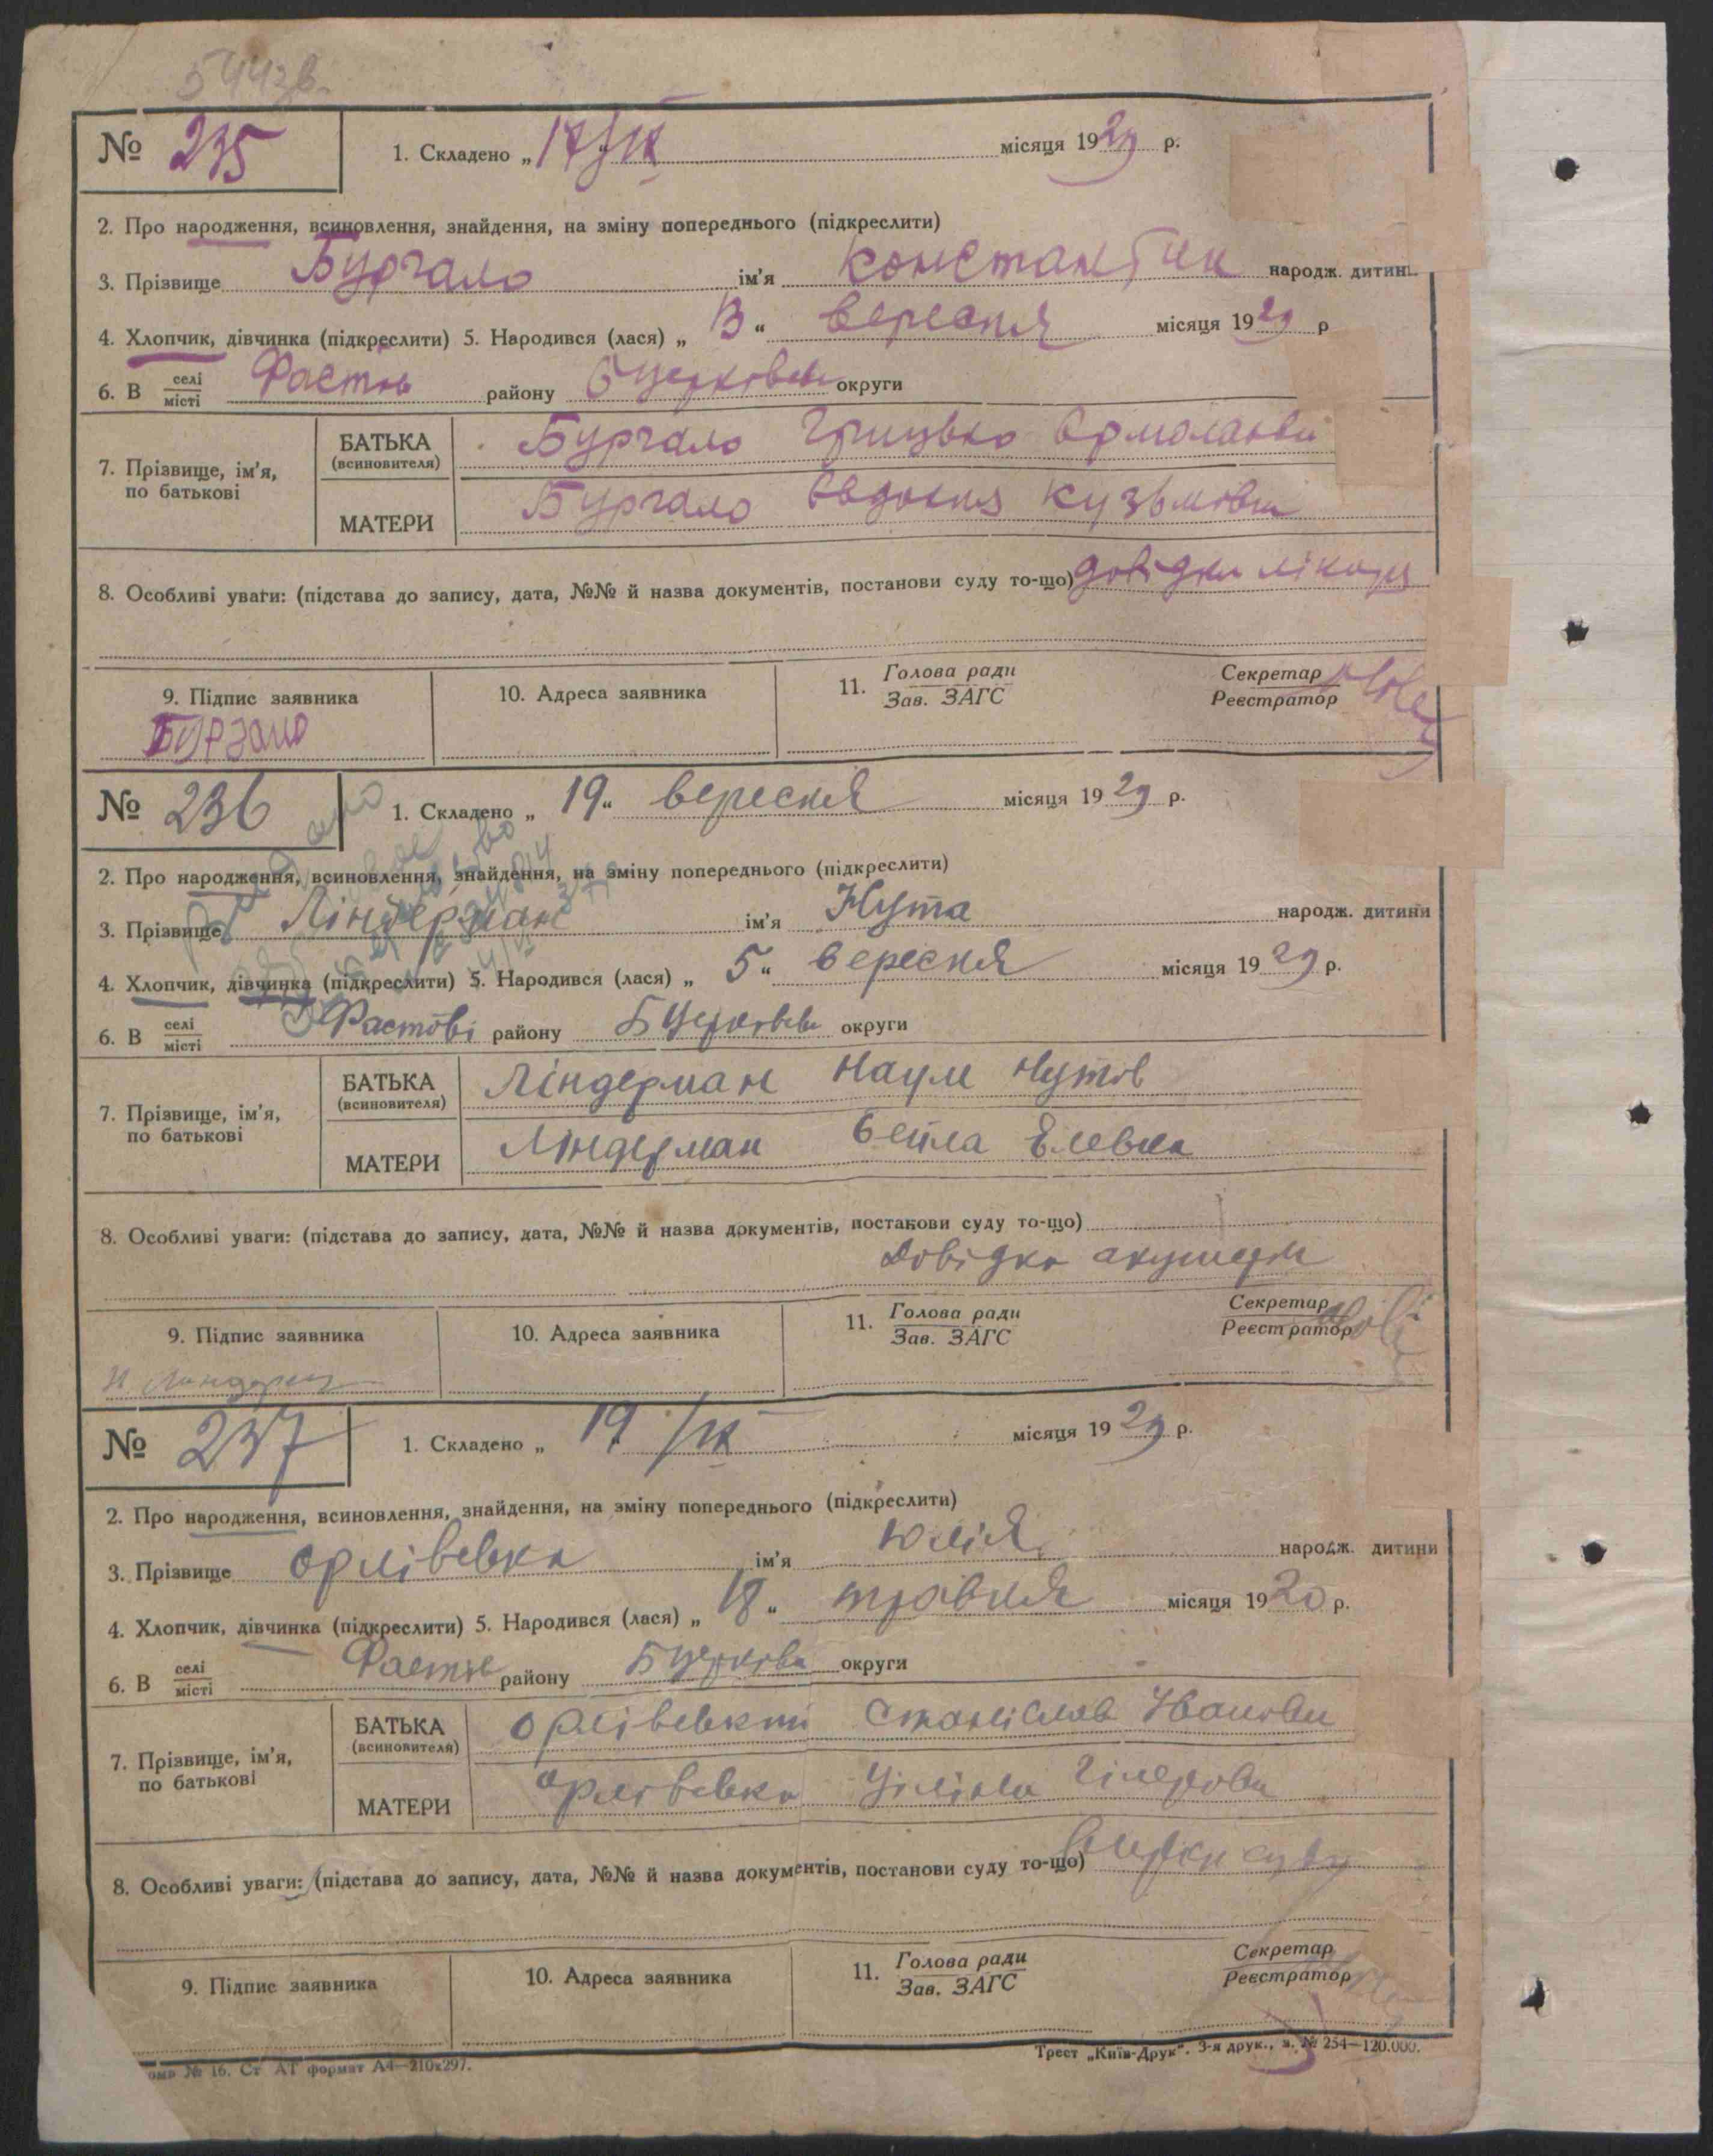 № 235 1. Складено „ 17/IX місяця 1929 р.
2. Про народження, всиновлення, знайдення, на зміну попереднього (підкреслити)
3. Прізвище Бургало ім'я Константин народж. дитини
4. Хлопчик, дівчинка (підкреслити) 5. Народився (лася) „ 13 “ вересня місяця 1929 р
6. В селі місті Фастів району Бцерковськ округи
7. Прізвище, ім'я, по батькові
БАТЬКА (всиновителя) Бургало Грицько
МАТЕРИ Бургало Евдокия Кузьмовн
8. Особливі уваги: (підстава до запису, дата, №№ й назва документів, постанови суду то-що) довідка лікаря
9. Підпис заявника 10. Адреса заявника 11. Голова ради Зав. ЗАГС Секретар Реєстратор
№ 236 1. Складено „ 19 “ вересня місяця 1929 р.
2. Про народження, всиновлення, знайдення, на зміну попереднього (підкреслити)
3. Прізвище Ліндерман ім'я Нута народж. дитини
4. Хлопчик, дівчинка (підкреслити) 5. Народився (лася) „ 5 “ вересня місяця 1929 р.
6. В селі місті Фастові району Бцерковськ округи
7. Прізвище, ім'я, по батькові
БАТЬКА (всиновителя) Ліндерман Наум Нутов
МАТЕРИ Ліндерман Бейла
8. Особливі уваги: (підстава до запису, дата, №№ й назва документів, постанови суду то-що)
Довідка акушерки
9. Підпис заявника 10. Адреса заявника 11. Голова ради Зав. ЗАГС Секретар Реєстратор
№ 237 1. Складено „ 19/IX місяця 1929 р.
2. Про народження, всиновлення, знайдення, на зміну попереднього (підкреслити)
3. Прізвище Орлівська ім'я Юлія народж. дитини
4. Хлопчик, дівчинка (підкреслити) 5. Народився (лася) „ 18 “ травня місяця 1920 р.
6. В селі місті Фастів району Бцерковськ округи
7. Прізвище, ім'я, по батькові
БАТЬКА (всиновителя) Орлівський Станіслав Іванович
МАТЕРИ Орлівська
8. Особливі уваги: (підстава до запису, дата, №№ й назва документів, постанови суду то-що)
9. Підпис заявника 10. Адреса заявника 11. Голова ради Зав. ЗАГС Секретар Реєстратор
№ 16. Ст АТ формат А4—210х297. Трест „Київ-Друк". 3-я друк., з. № 254—120.000.